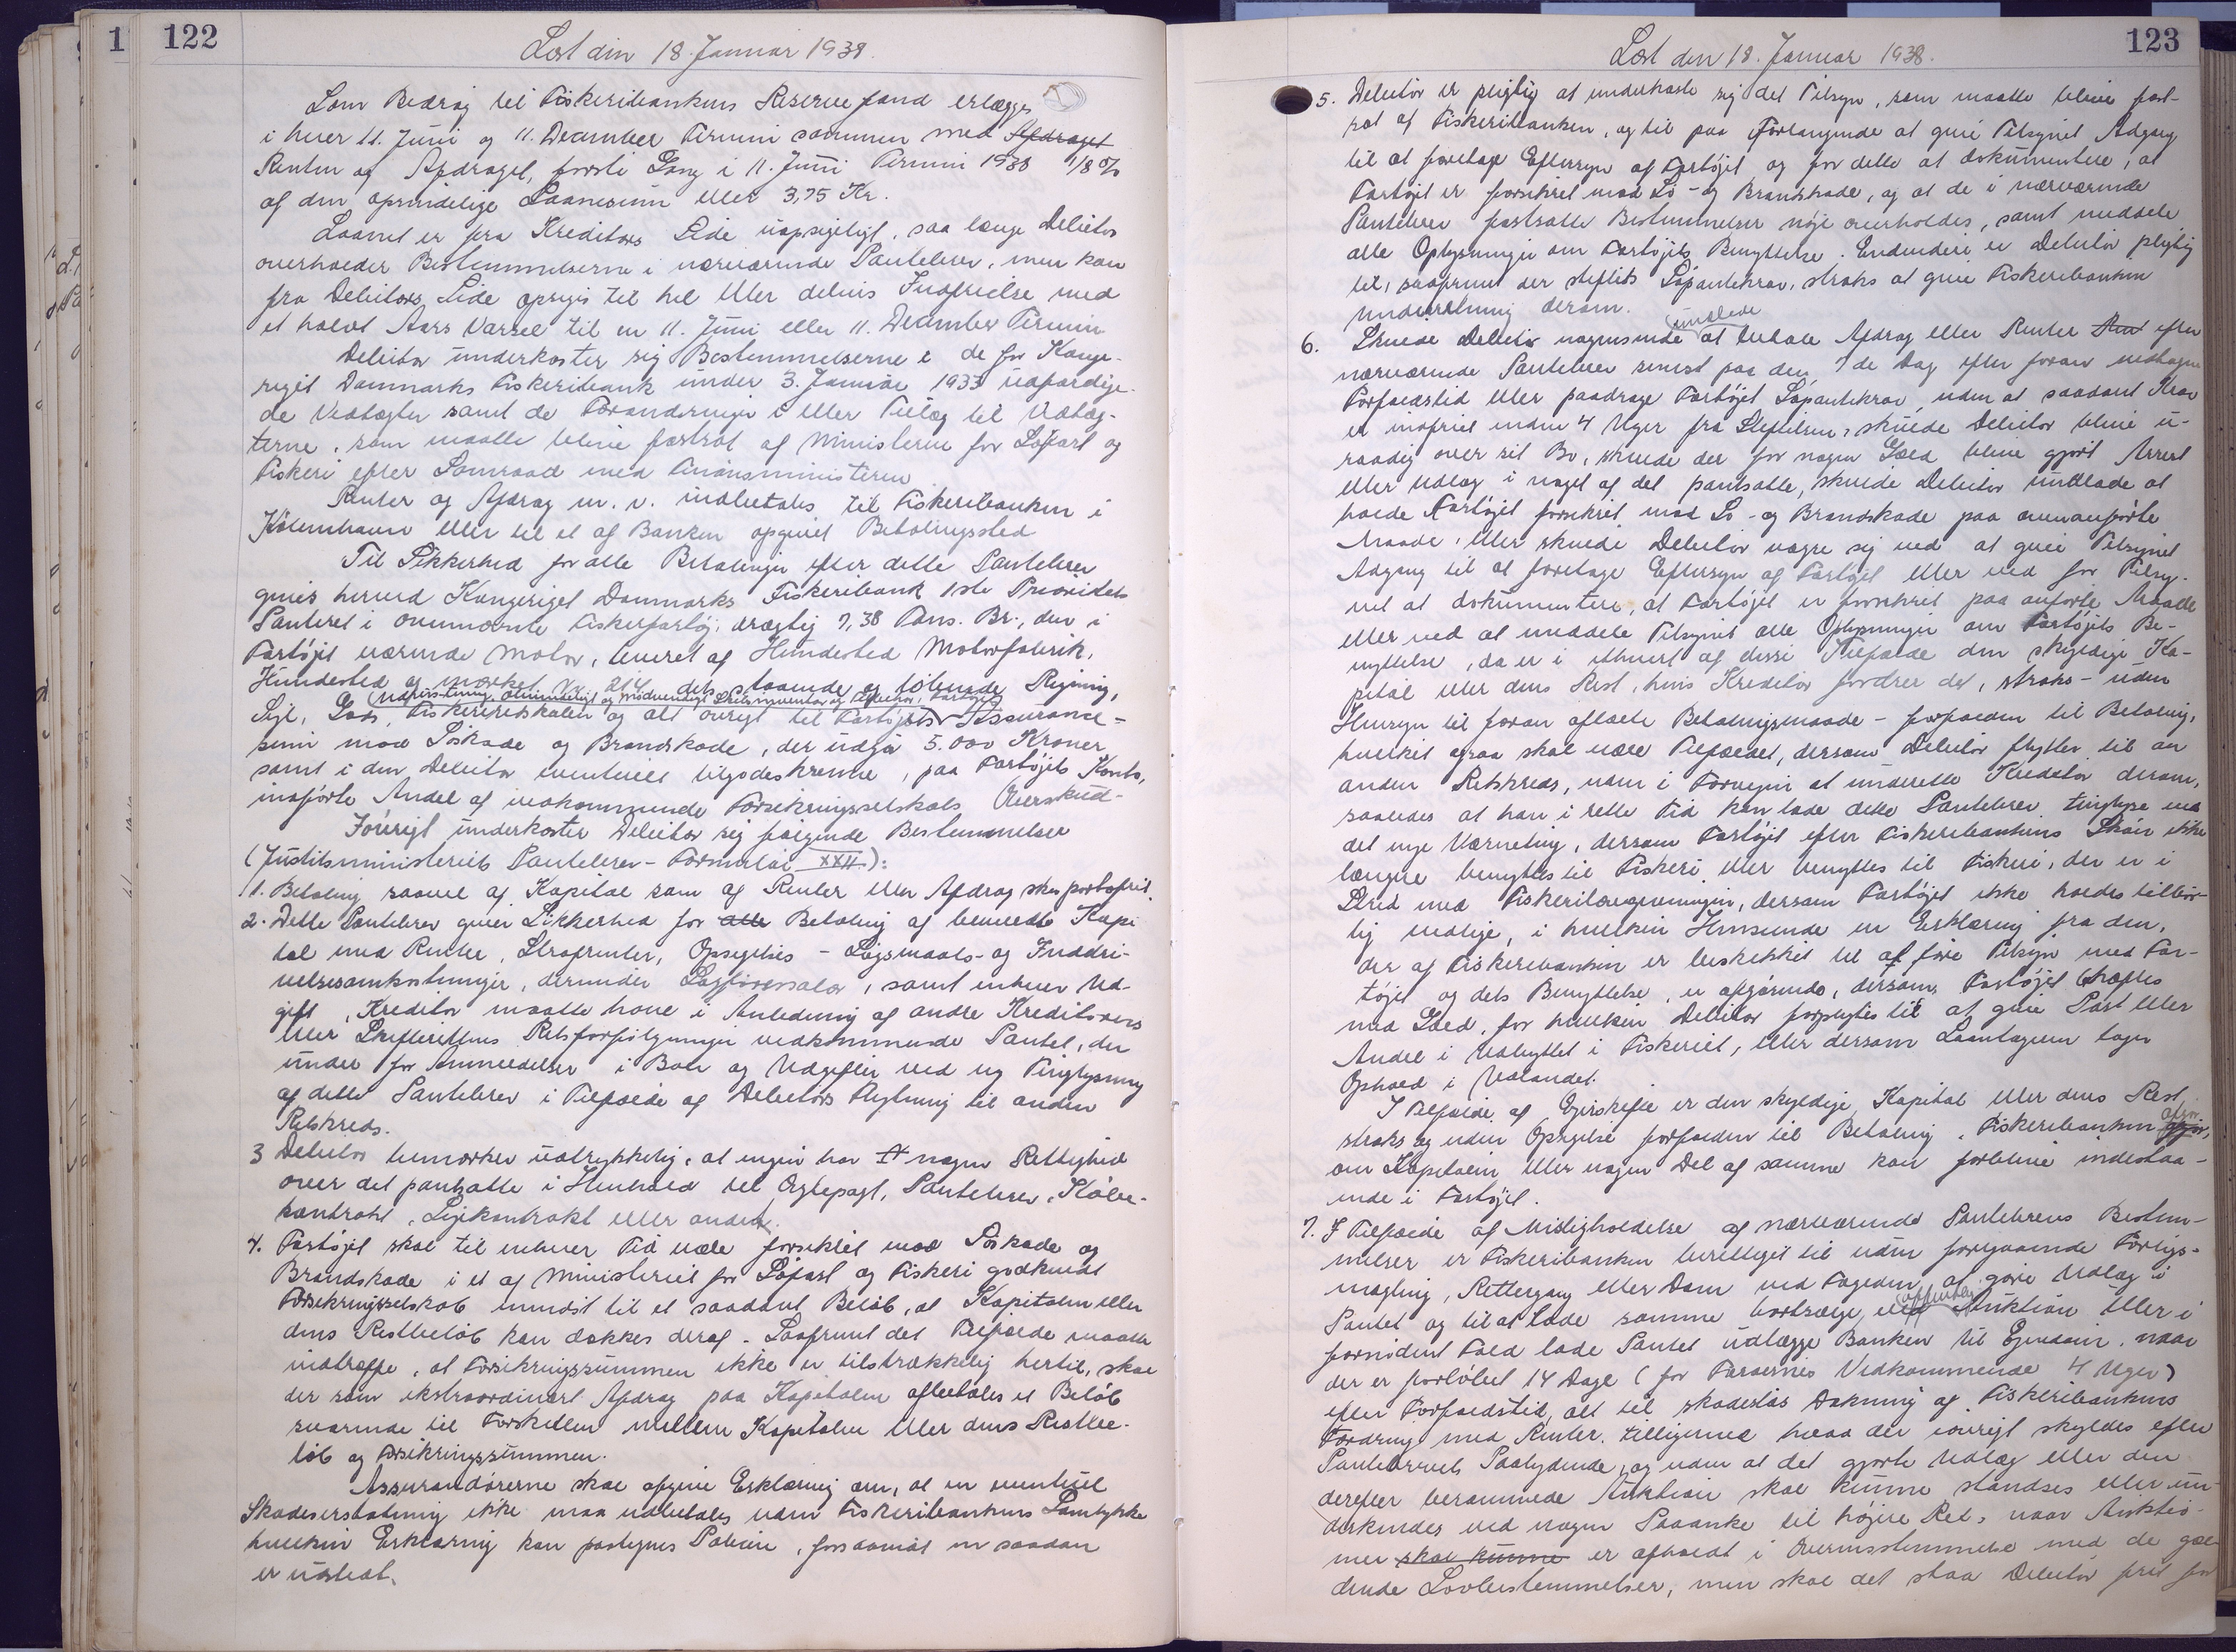 122
Læst den 18. Januar 1938.
Som Bidrag til Fiskeribankens Reservefond erlægges
i hver 11. Juni og 11. December Termin sammen med Afdraget
Renten og Afdraget, første Gang i 11. Juni Termin 1938 1/8 %
af den oprindelige Laanesum eller 3,75 Kr.
Laanet er fra Kreditors Side uopsigeligt, saa længe Debitor
overholder Bestemmelserne i nærværende Pantebrev, men kan
fra Debitors Side opsiges til hel eller delvis Indfrielse med
et halvt Aars Varsel til en 11. Juni eller 11. December Termin
Debitor underkaster sig Bestemmelserne i de for Konge-
riget Danmarks Fiskeribank under 3. Januar 1933 udfærdige-
de Vedtægter samt de Forandringer i eller Tillæg til Vedtæg-
terne, som maatte blive fastsat af Ministeren for Søfart og
Fiskeri efter Samraad med Finansministeren
Renter og Afdrag m. v. indbetales til Fiskeribanken i
København eller til et af Banken opgivet Betalingssted
Til Sikkerhed for alle Betalinger efter dette Pantebrev
gives herved Kongeriget Danmarks Fiskeribank 1ste Prioritets
Panteret i ovennævnte Fiskerfartøj, drægtig 7,38 Tons. Br., den i
Fartøjet værende Motor, leveret af Hundested Motorfabrik,
Hundested og mærket No 214 dets staaende og løbende Rigning,
Udrustning, almindeligt og nødvendigt Skibsinventar og Tilbehør, Fartøjets
Sejl, Gods, Fiskeriredskaber og alt øvrigt til Fartøjets Assurance-
sum mod Søskade og Brandskade, der udgør 5.000 Kroner
samt i den Debitor eventuelt tilgodeskrevne, paa Fartøjets Konto,
indførte Andel af vedkommende Forsikringsselskabs Overskud-
Iøvrigt underkaster Debitor sig følgende Bestemmelser
(Justitsministeriets Pantebrev-Formular XXII):
1. Betaling saavel af Kapital som af Renter eller Afdrag sker portofrit.
2. Dette Pantebrev giver Sikkerhed for alle Betaling af bemeldte Kapi
tal med Renter, Strafrenter, Opsigelses - Søgsmaals- og Inddri-
velsesomkostninger, derunder Sagførersalær, samt enhver Ud-
gift, Kreditor maatte have i Anledning af andre Kreditorers
eller Skifterettens Retsforfølgninger vedkommende Pantet, der
under for Anmeldelser i Boer og Udgifter ved ny Tinglysning
af dette Pantebrev i Tilfælde af Debitors Flytning til anden
Retskreds.
3 Debitor bemærker udtrykkelig, at ingen har nogen Rettighed
over det pantsatte i Henhold til Ægtepagt, Pantebrev, Købe-
kontrakt, Lejekontrakt eller andet.
4. Fartøjet skal til enhver Tid være forsikret mod Søskade og
Brandskade i et af Ministeriet for Søfart og Fiskeri godkendt
Forsikringsselskab mindst til et saadant Beløb, at Kapitalen eller
dens Restbeløb kan dækkes deraf - Saafremt det Tilfælde maatte
indtræffe, at Forsikringssummen ikke er tilstrækkelig hertil, skal
der som ekstraordinært Afdrag paa Kapitalen afbetales et Beløb
svarende til Forskellen mellem Kapitalen eller dens Restbe-
løb og Forsikringssummen.
Assurandørerne skal afgive Erklæring om, at en eventuel
Skadeserstatning ikke maa udbetales uden Fiskeribankens Samtykke
hvilken Erklæring kan paategnes Policen, forsaavidt en saadan
er udstedt.
123
Læst den 18. Januar 1938.
5. Debitor er pligtig at underkaste sig det Tilsyn, som maatte blive fast-
sat af Fiskeribanken, og til paa Forlangende at give Tilsynet Adgang
til at foretage Eftersyn af Fartøjet og for dette at dokumentere, at
Fartøjet er forsikret mod Sø- og Brandskade, og at de i nærværende
Pantebrev fastsatte Bestemmelser nøje overholdes, samt meddele
alle Oplysninger om Fartøjets Benyttelse. Endvidere er Debitor pligtig
til, saafremt der stiftes Søpantekrav, straks at give Fiskeribanken
Underretning derom.
undlade
6. Skulde Debitor nogensinde at betale Afdrag eller Renter efter
nærværende Pantebrev senest paa den 7de Dag efter foran vedtagne
Forfaldstid eller paadrage Fartøjet Søpantekrav, uden at saadant Krav
er indfriet inden 4 Uger fra Stiftelsen, skulde Debitor blive u-
raadig over sit Bo, skulde der for nogen Gæld blive gjort Arrest
eller Udlæg i noget af det pantsatte, skulde Debitor undlade at
holde Fartøjet forsikret mod Sø- og Brandskade paa ovenanførte
Maade, eller skulde Debitor vægre sig ved at give Tilsynet
Adgang til at foretage Eftersyn af Fartøjet eller ved for Tilsy-
net at dokumentere, at Fartøjet er forsikret paa anførte Maade
eller ved at meddele Tilsynet alle Oplysninger om Fartøjets Be-
nyttelse, da er i ethvert af disse Tilfælde den skyldige Ka-
pital eller dens Rest, hvis Kreditor fordrer det, straks - uden
Hensyn til foran aftalte Betalingsmaade - forfalden til Betaling,
hvilket ogsaa skal være Tilfældet, dersom Debitor flytter til en
anden Retskreds, uden i Forvejen at underrette Kreditor derom,
saaledes at han i rette Tid kan lade dette Pantebrev tinglyse ved
det nye Værneting, dersom Fartøjet efter Fiskeribankens Skøn ikke
længere benyttes til Fiskeri, eller benyttes til Fiskeri, der er i
Strid med Fiskerilovgivningen, dersom Fartøjet ikke holdes tilbør-
lig vedlige, i hvilken Henseende en Erklæring fra den,
der af Fiskeribanken er beskikket til at føre Tilsyn med Far-
tøjet og dets Benyttelse, er afgørende, dersom Fartøjet hæftes
med Gæld, for hvilken Debitor forpligtes til at give Part eller
Andel i Udbyttet i Fiskeriet, eller dersom Laantageren tager
Ophold i Udlandet.
I Tilfælde af Ejerskifte er den skyldige Kapital eller dens Rest
straks og uden Opsigelse forfalden til Betaling. Fiskeribanken afgør,
om Kapitalen eller nogen Del af samme kan forblive indestaa-
ende i Fartøjet.
7. I Tilfælde af Misligholdelse af nærværende Pantebrevs Bestem-
melser er Fiskeribanken berettiget til uden foregaaende Forligs-
mægling, Rettergang eller Dom ved Fogeden at gøre Udlæg i
offentlig
Pantet og til at lade samme bortsælge ved Auktion eller i
fornødent Fald lade Pantet udlægge Banken til Ejendom, naar
der er forløbet 14 Dage (for Færøernes Vedkommende 4 Uger)
efter Forfaldstid, alt til skadesløs Dækning af Fiskeribankens
Fordring med Renter, tilligemed hvad der iøvrigt skyldes efter
Pantebrevets Paalydende, og uden at det gjorte Udlæg eller den
derefter berammede Auktion skal kunne standses eller un-
derkendes ved nogen Paaanke til højere Ret, naar Auktio-
nen skal kunne er afholdt i Overensstemmelse med de gæl-
dende Lovbestemmelser, men skal det staa Debitor frit for